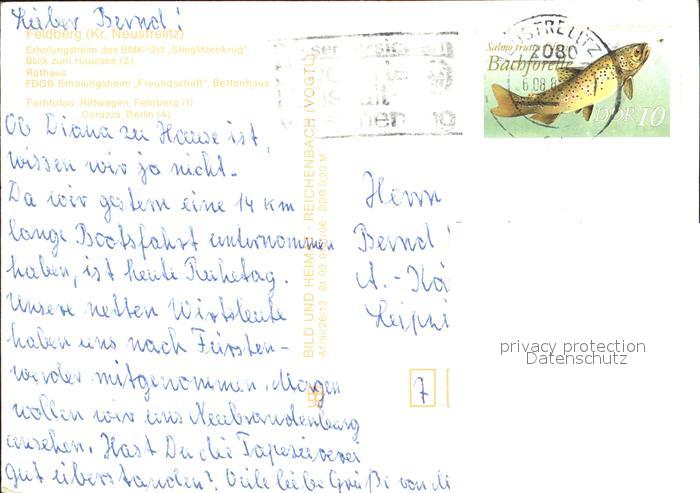 Lieber Bernd!
Feldberg (Kr. Neustrelitz)
Erholungsheim des BMK-Ost „Stieglitzenkrug"
Blick zum Haussee (2)
Rathaus
FDGB-Erholungsheim „Freundschaft", Bettenhaus
Farbfotos: Rittwagen, Feldberg (1)
Corazza, Berlin (4)
Ob Diana zu Hause ist,
wissen wir ja nicht.
Da wir gestern eine 14 km
lange Bootsfahrt unternommen
haben, ist heute Ruhetag.
Unsere netten Wirtsleute
haben uns nach Fürsten-
werder mitgenommen. Morgen
wollen wir uns Neubrandenburg
ansehen. Hast Du die Tapeziererei
gut überstanden? Viele liebe Grüße von
BILD UND HEIMAT REICHENBACH (VOGTL)
DDR 0,20 M
STRELITZ
2080
Salmo trutta
Bachforelle
DDR 10
Herrn
Bernd
A.-Kä
Leipzi
7
privacy protection
Datenschutz